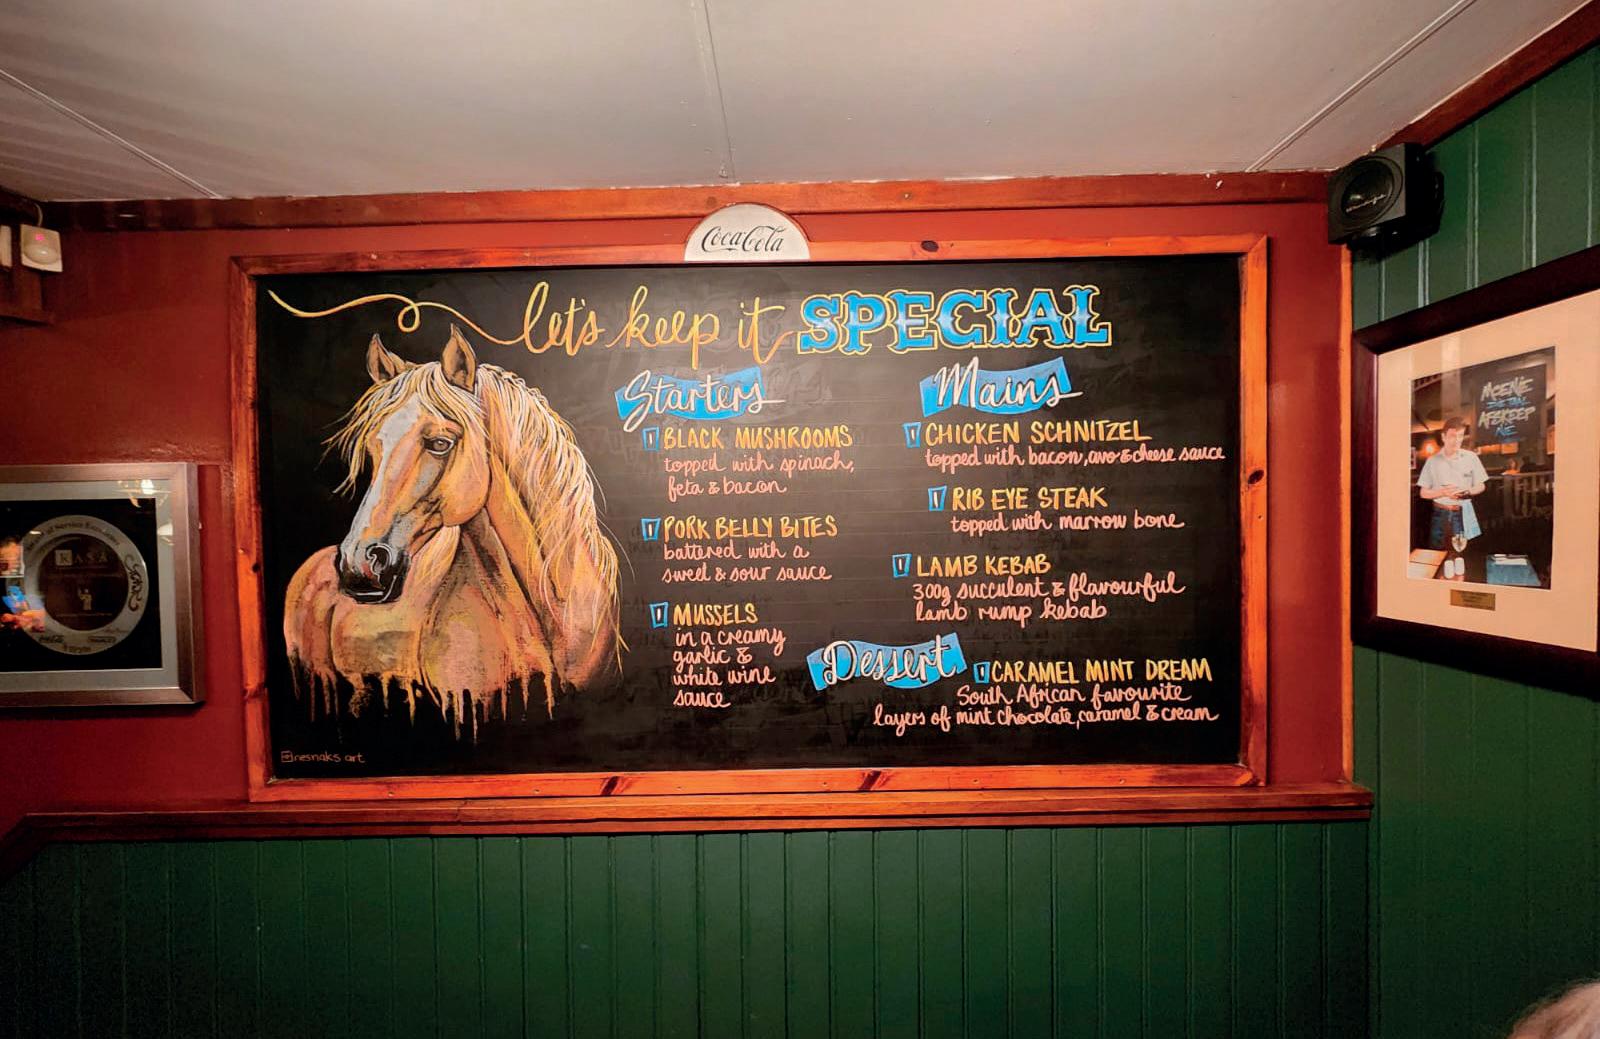 Coca-Cola
let's keep it SPECIAL
Starters
BLACK MUSHROOMS
topped with spinach,
feta & bacon
PORK BELLY BITES
battered with a
sweet & sour sauce
MUSSELS
in a creamy
garlic &
white wine
sauce
Mains
CHICKEN SCHNITZEL
topped with bacon, avo & cheese sauce
RIB EYE STEAK
topped with marrow bone
LAMB KEBAB
300g succulent & flavourful
lamb rump kebab
Dessert
CARAMEL MINT DREAM
South African favourite
layers of mint chocolate, caramel & cream
nesnaks art
RASA